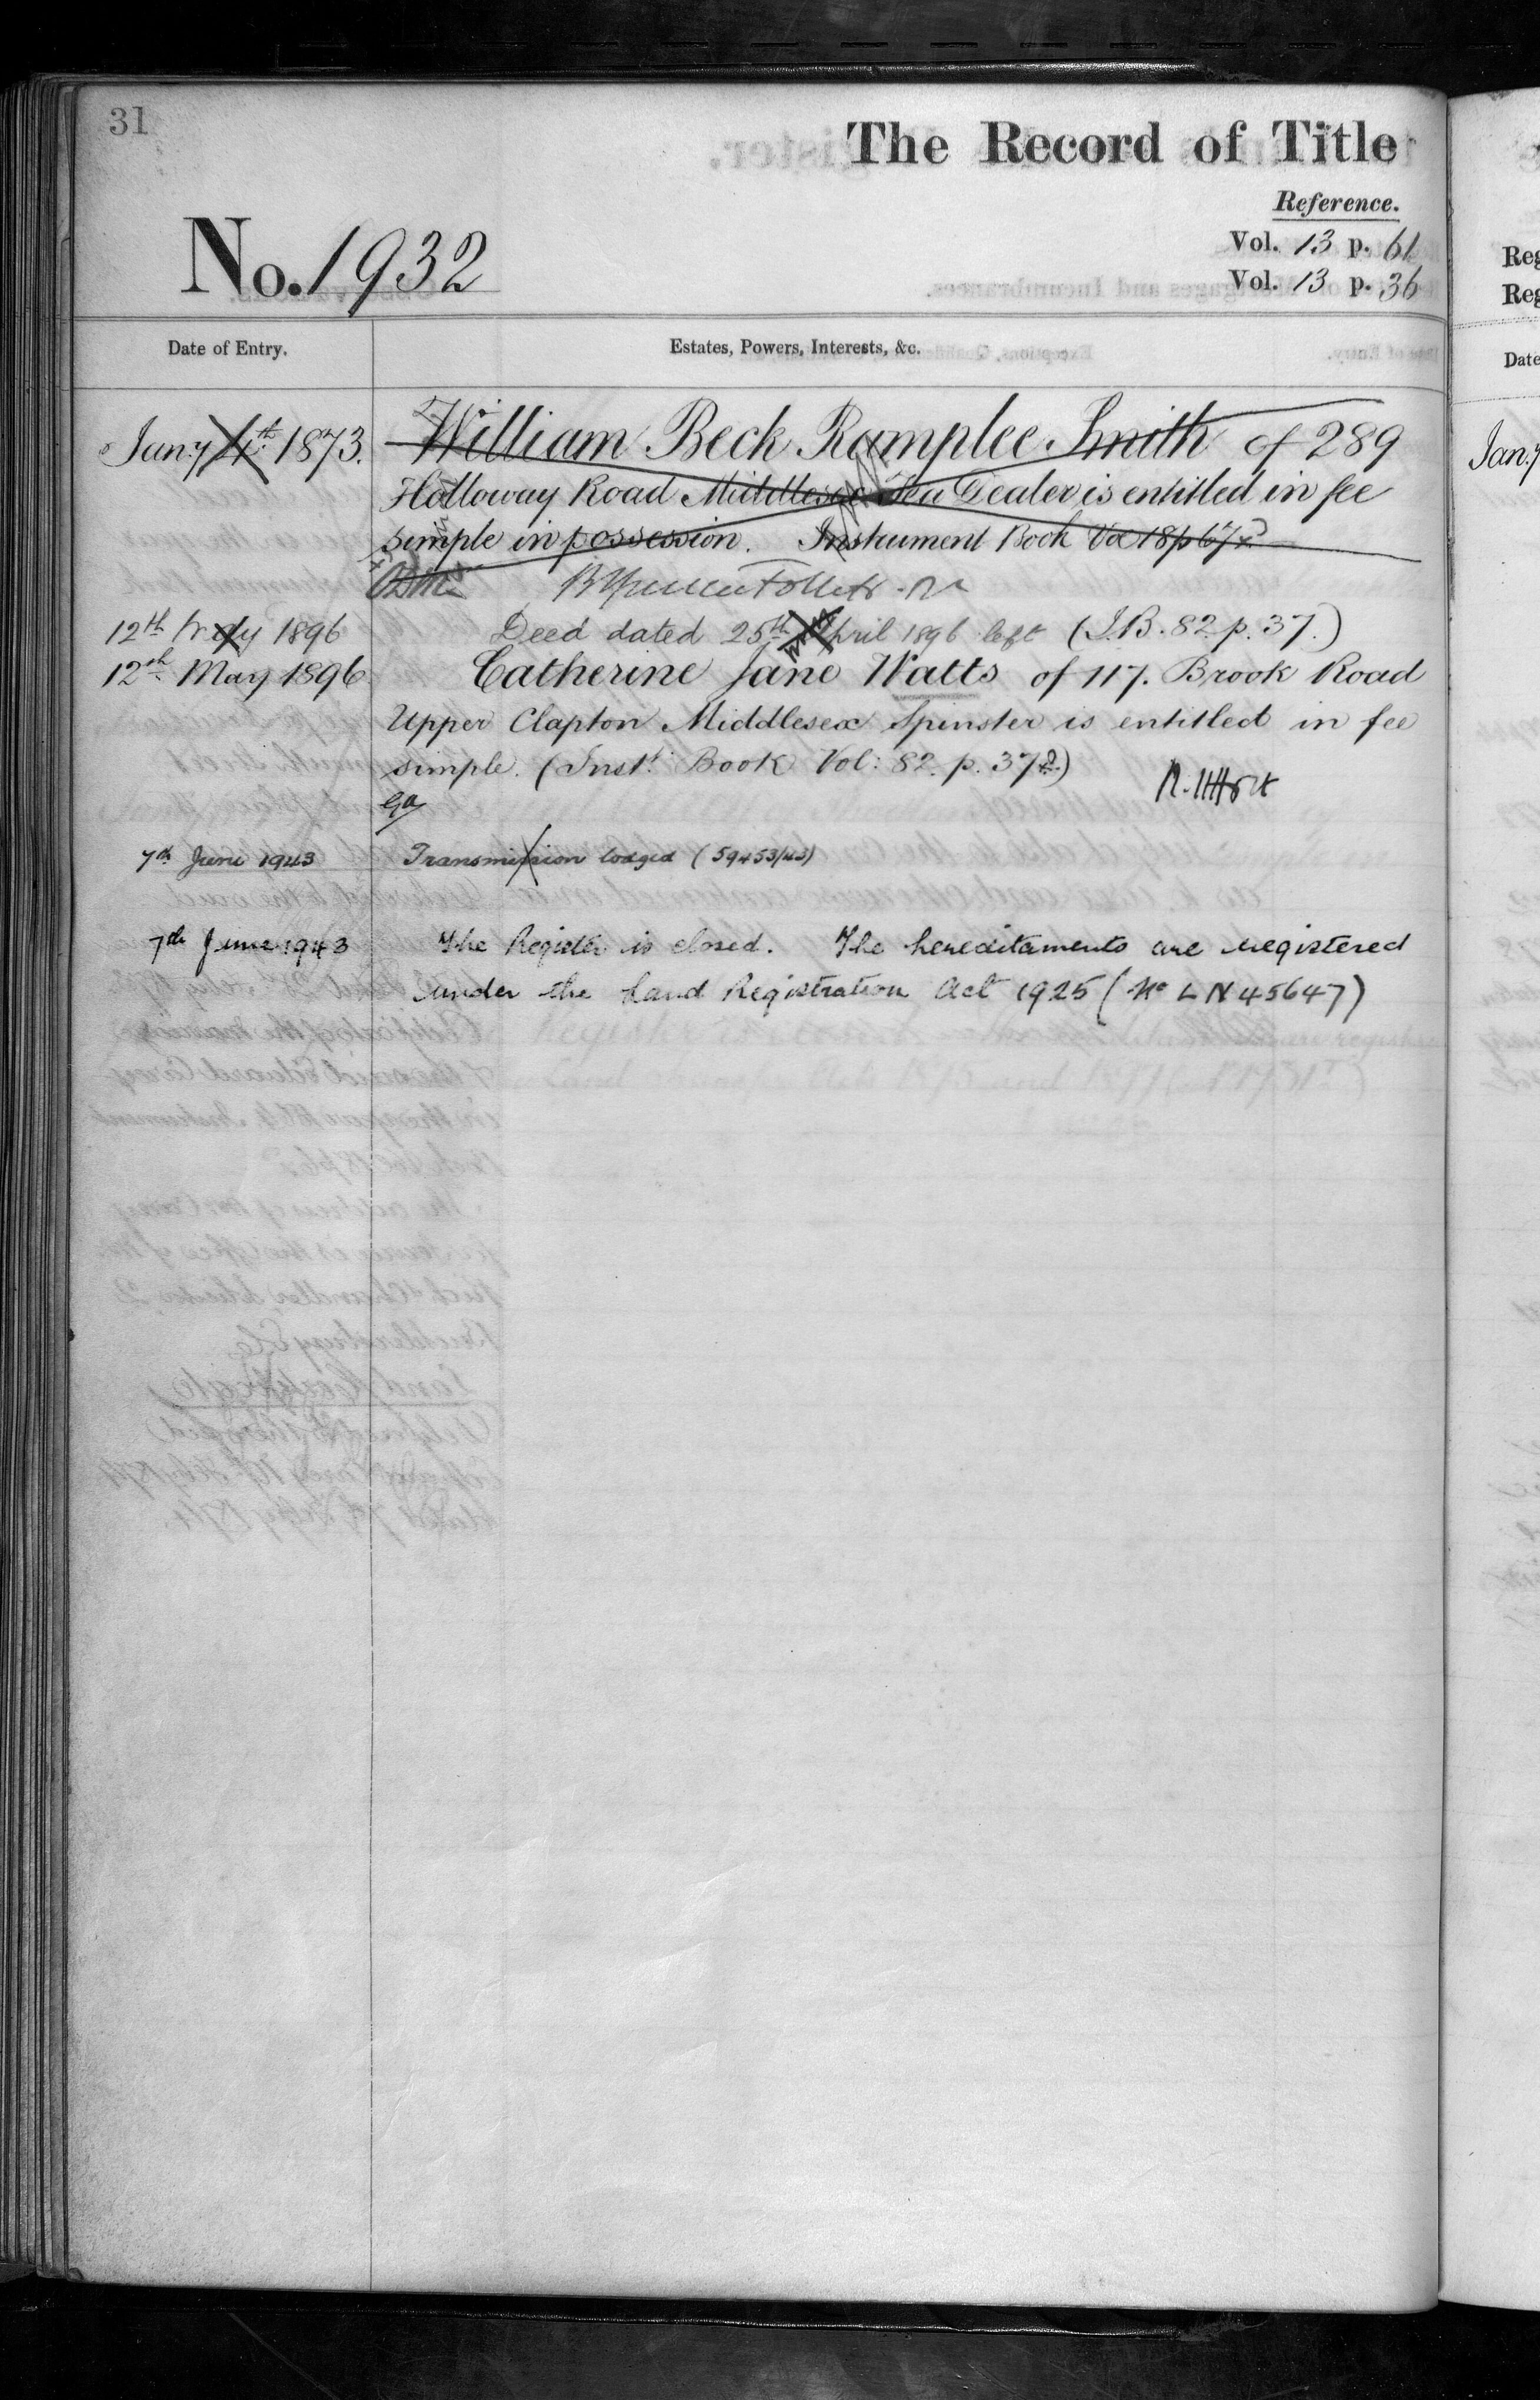 31
The Record of Title
Reference.
No. 1932
Vol. 13 p. 61
Vol. 13 p. 36
Date of Entry.
Estates, Powers, Interests, &c.
Jany 4th 1873.
William Beck Ramplee Smith of 289
Holloway Road Middlesex Tea Dealer is entitled in fee
simple in possession. Instrument Book Vol 18 p 67
12th May 1896
Deed dated 25th April 1896 left (I.B. 82 p. 37.)
12th May 1896
Catherine Jane Watts of 117. Brook Road
Upper Clapton Middlesex Spinster is entitled in fee
simple. (Inst. Book Vol: 82. p. 37
7th June 1943
Transmission lodged (59453/43)
7th June 1943
The Register is closed. The hereditaments are registered
under the Land Registration Act 1925 (No LN 45647)
Reg
Reg
Date
Jany